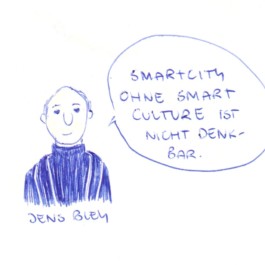 SMARTCITY
OHNE SMART
CULTURE IST
NICHT DENK-
BAR.
JENS BLEY